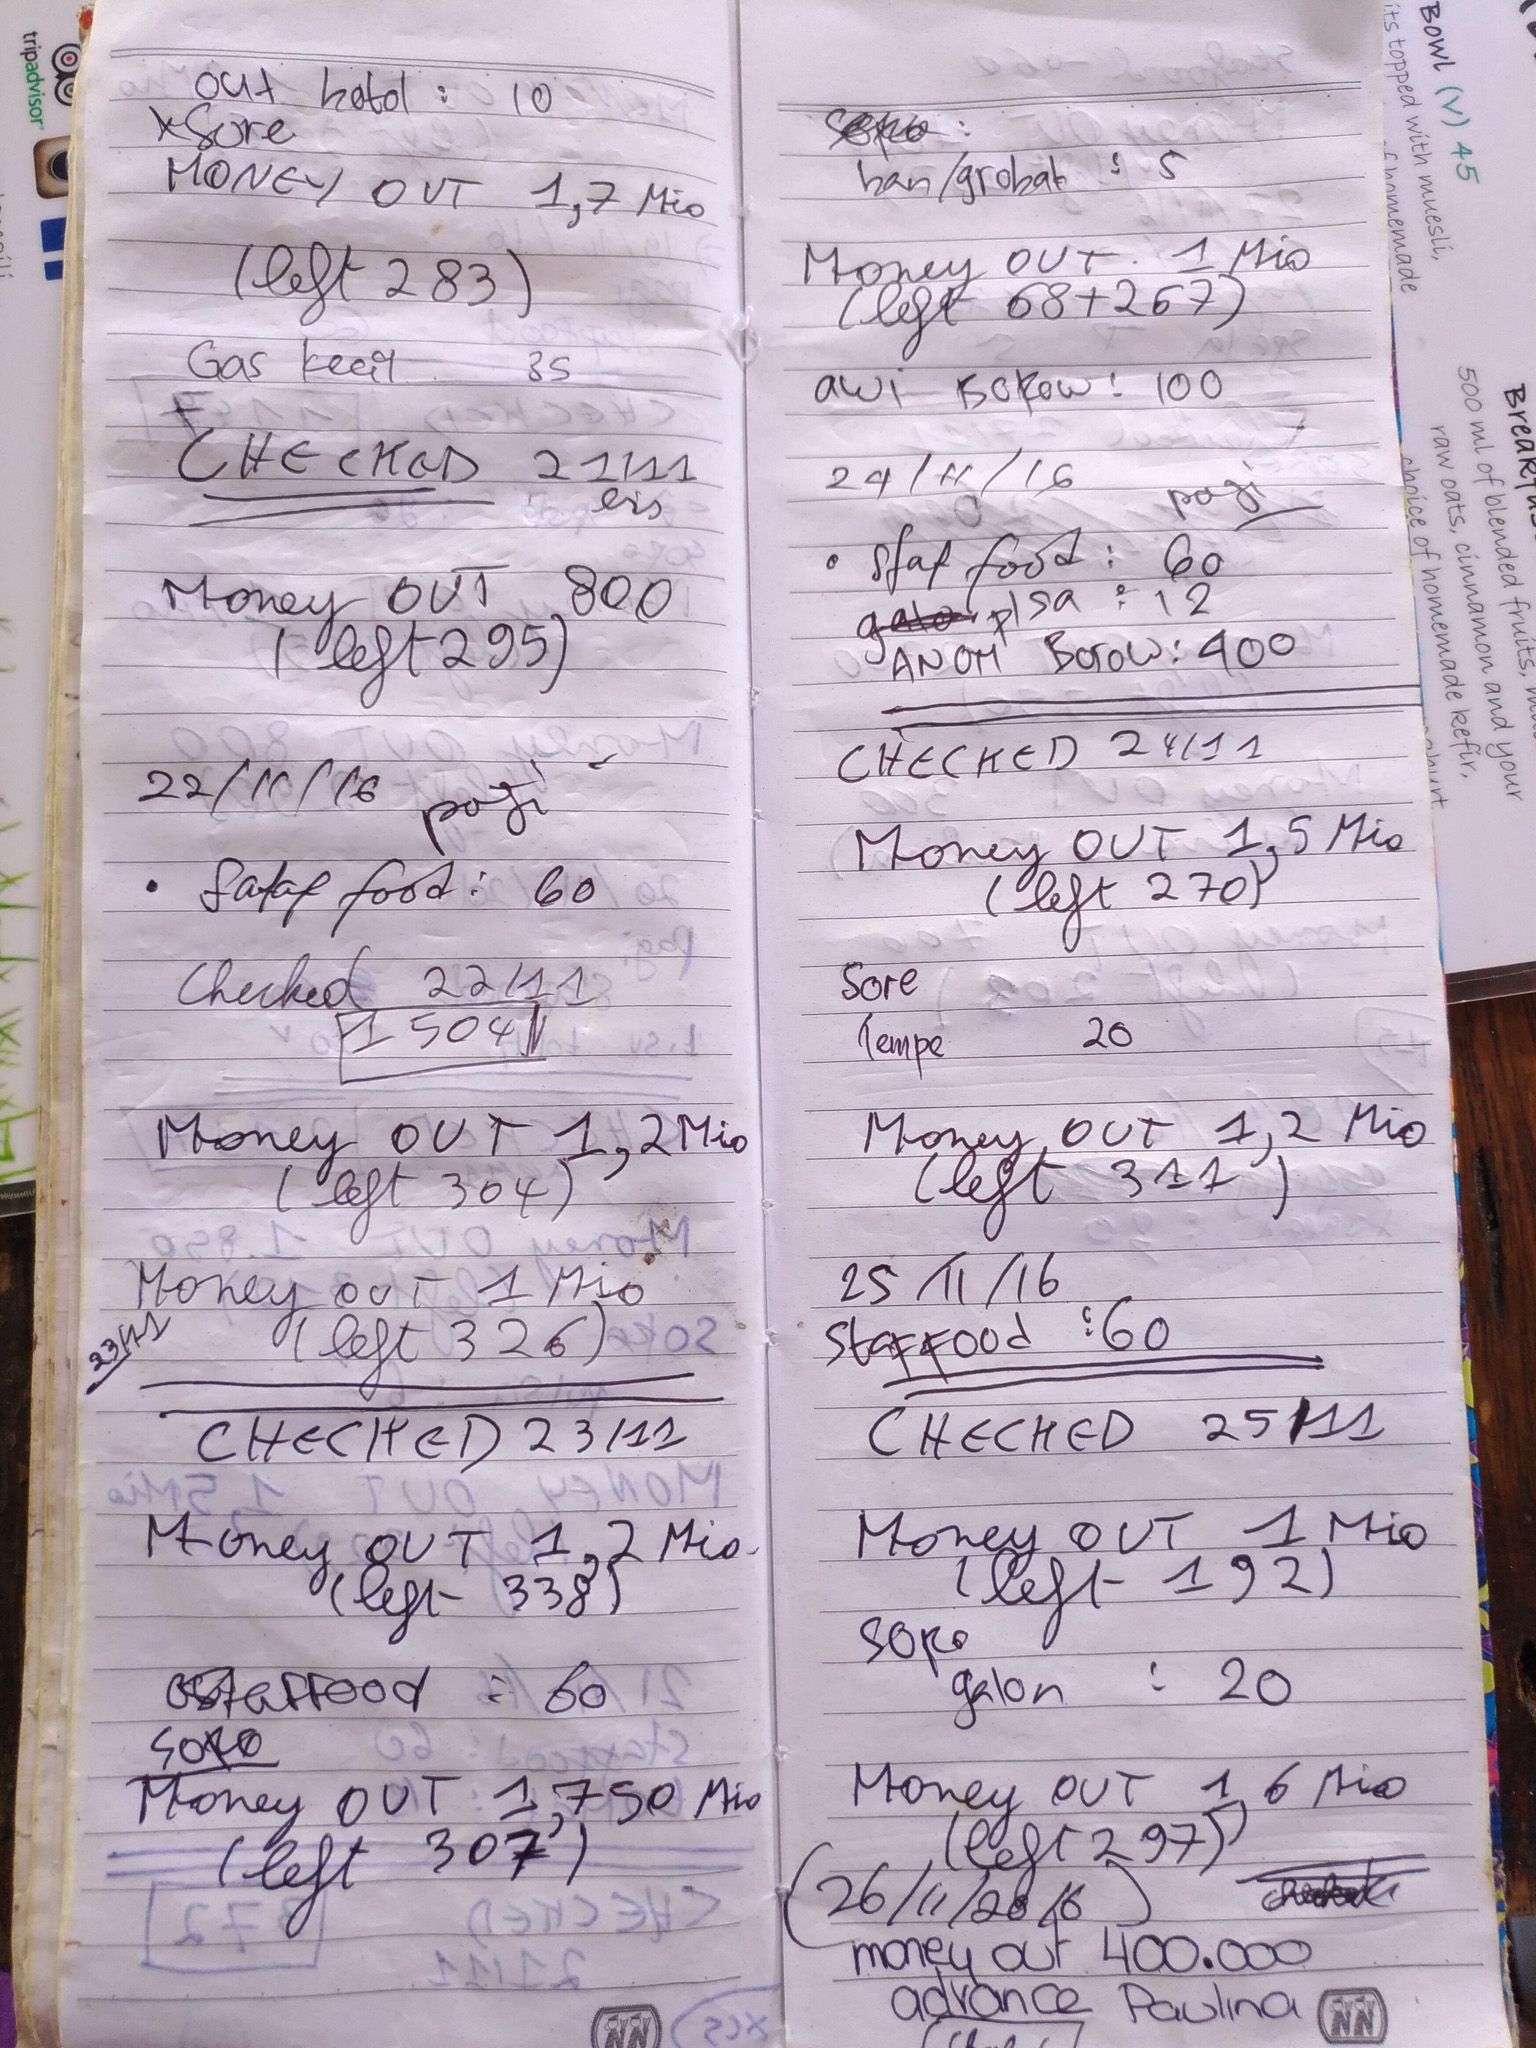 out hotd : 10
x Sore
MONEY OUT 1,7 Mio
(left 283)
Gas kecil 35
CHECKED 21/11
Money OUT 800
(left 295)
22/11/16 pagi
• Sataf food : 60
Checked 22/11
1 504
Money OUT 1,2 Mio
(left 304)
Money OUT 1 Mio
(left 326)
23/11
CHECKED 23/11
Money OUT 1,2 Mio
(left 338)
staffood : 60
sore
Money OUT 1,750 Mio
(left 307)
ban/grobak : 5
Money OUT 1 Mio
(left 68+267)
awi Borow : 100
24/11/16 pagi
• Staf food : 60
plsa : 12
ANOM Borow : 400
CHECKED 24/11
Money OUT 1,5 Mio
(left 270)
Sore
Tempe 20
Money OUT 1,2 Mio
(left 311)
25/11/16
Staffood : 60
CHECKED 25/11
Money OUT 1 Mio
(left 192)
Sore
galon : 20
Money OUT 1,6 Mio
(left 297)
(26/11/2016)
money out 400.000
advance Paulina
NN
NN
tripadvisor
Bowl (V) 45
its topped with muesli,
of homemade
500 ml of blended fruits,
raw oats, cinnamon and your
choice of homemade kefir,